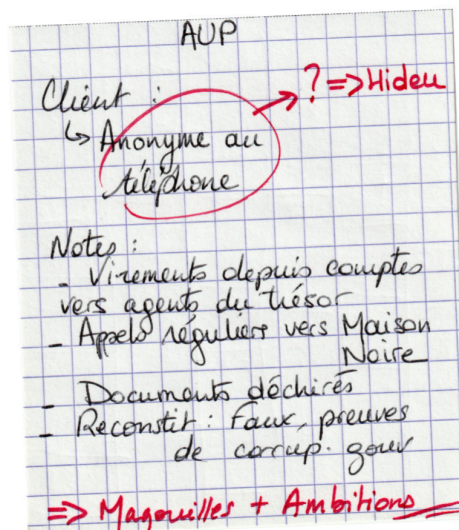 AUP
Client :
? => Hideu
↳ Anonyme au
téléphone
Notes :
- Virements depuis comptes
vers agents du trésor
- Appels réguliers vers Maison
Noire
- Documents déchirés
- Reconstit : Faux, preuves
de corrup. gouv
=> Magouilles + Ambitions